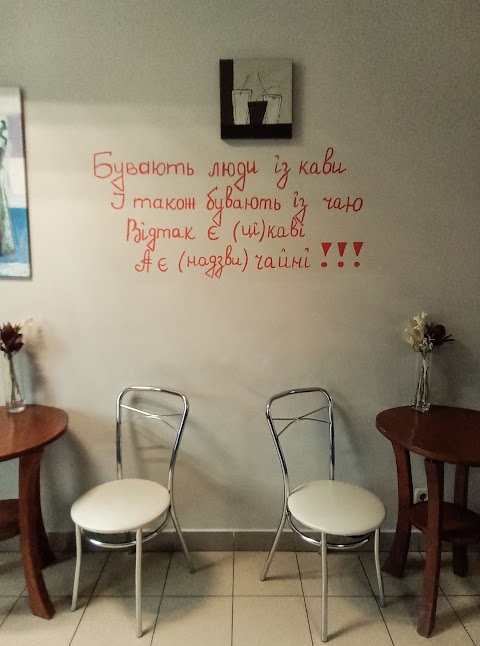 Бувають люди із кави
І також бувають із чаю
Відтак є (ці)каві
А є (надзви) чайні !!!